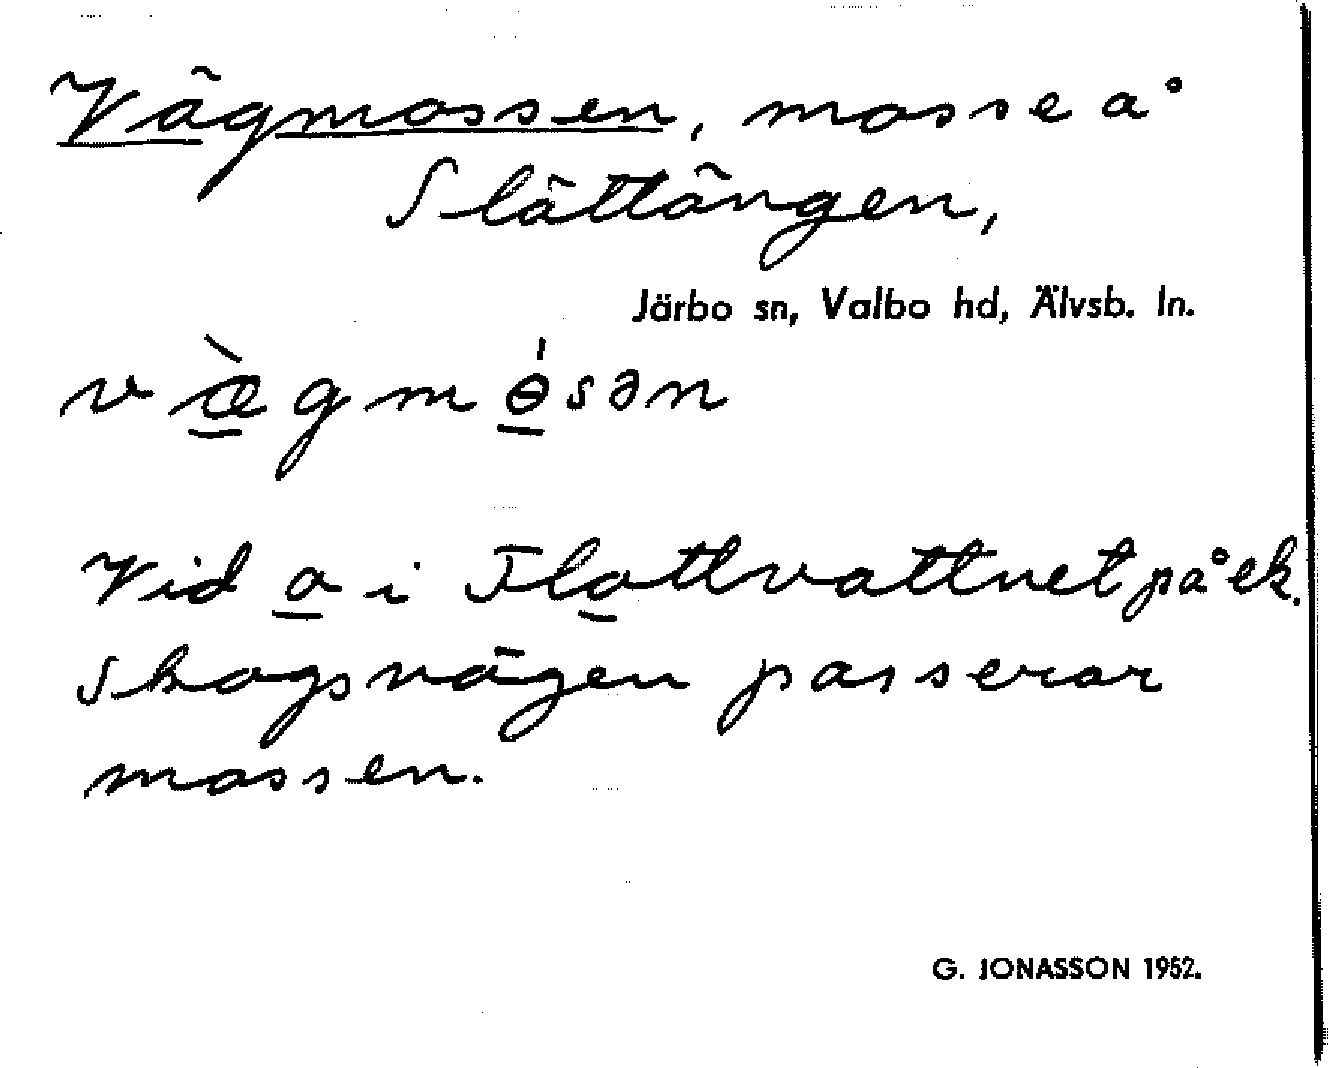 Vägmossen, mosse å
Slättängen,
Järbo sn, Valbo hd, Älvsb. ln.
væ̀gmɵ́sən
Vid o i Flottvattnet på ek.
Skogsvägen passerar
mossen.
G. JONASSON 1952.